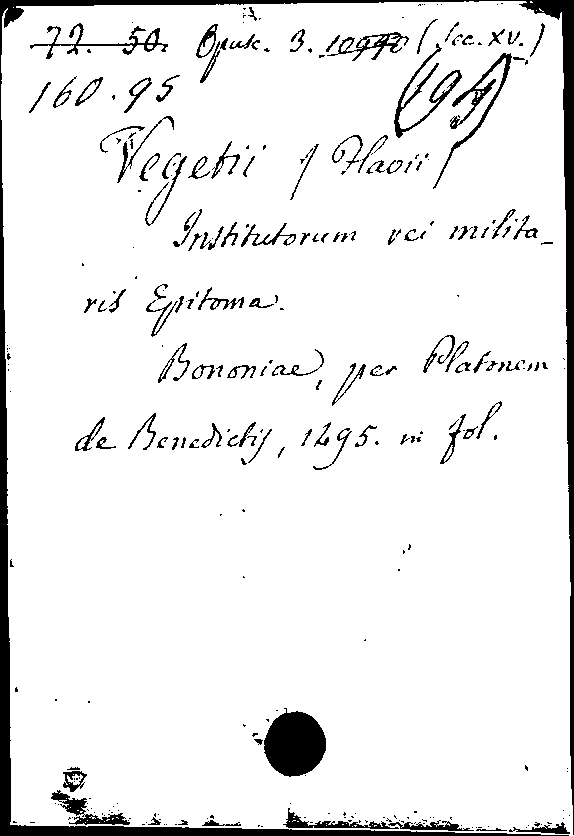 72. 50. Opusc. 3. 10940 (Sec. XV.)
160.95
(194)
Vegetii (Flavii)
Institutorum rei milita-
ris Epitoma.
Bononiae, per Platonem
de Benedictis, 1495. in fol.